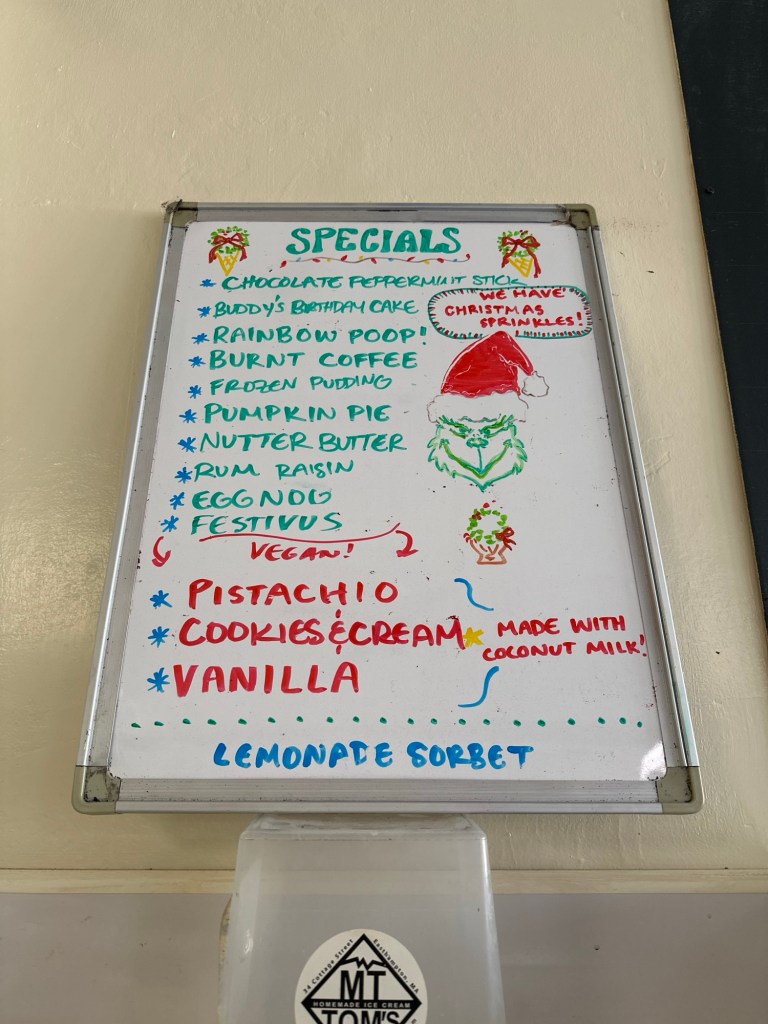 SPECIALS
* CHOCOLATE PEPPERMINT STICK
* BUDDY'S BIRTHDAY CAKE
WE HAVE
CHRISTMAS
SPRINKLES!
* RAINBOW POOP!
* BURNT COFFEE
* FROZEN PUDDING
* PUMPKIN PIE
* NUTTER BUTTER
* RUM RAISIN
* EGG NOG
* FESTIVUS
VEGAN!
* PISTACHIO
* COOKIES & CREAM
* VANILLA
* MADE WITH
COCONUT MILK!
LEMONADE SORBET
34 Cottage Street Easthampton, MA
MT
HOMEMADE ICE CREAM
TOM'S